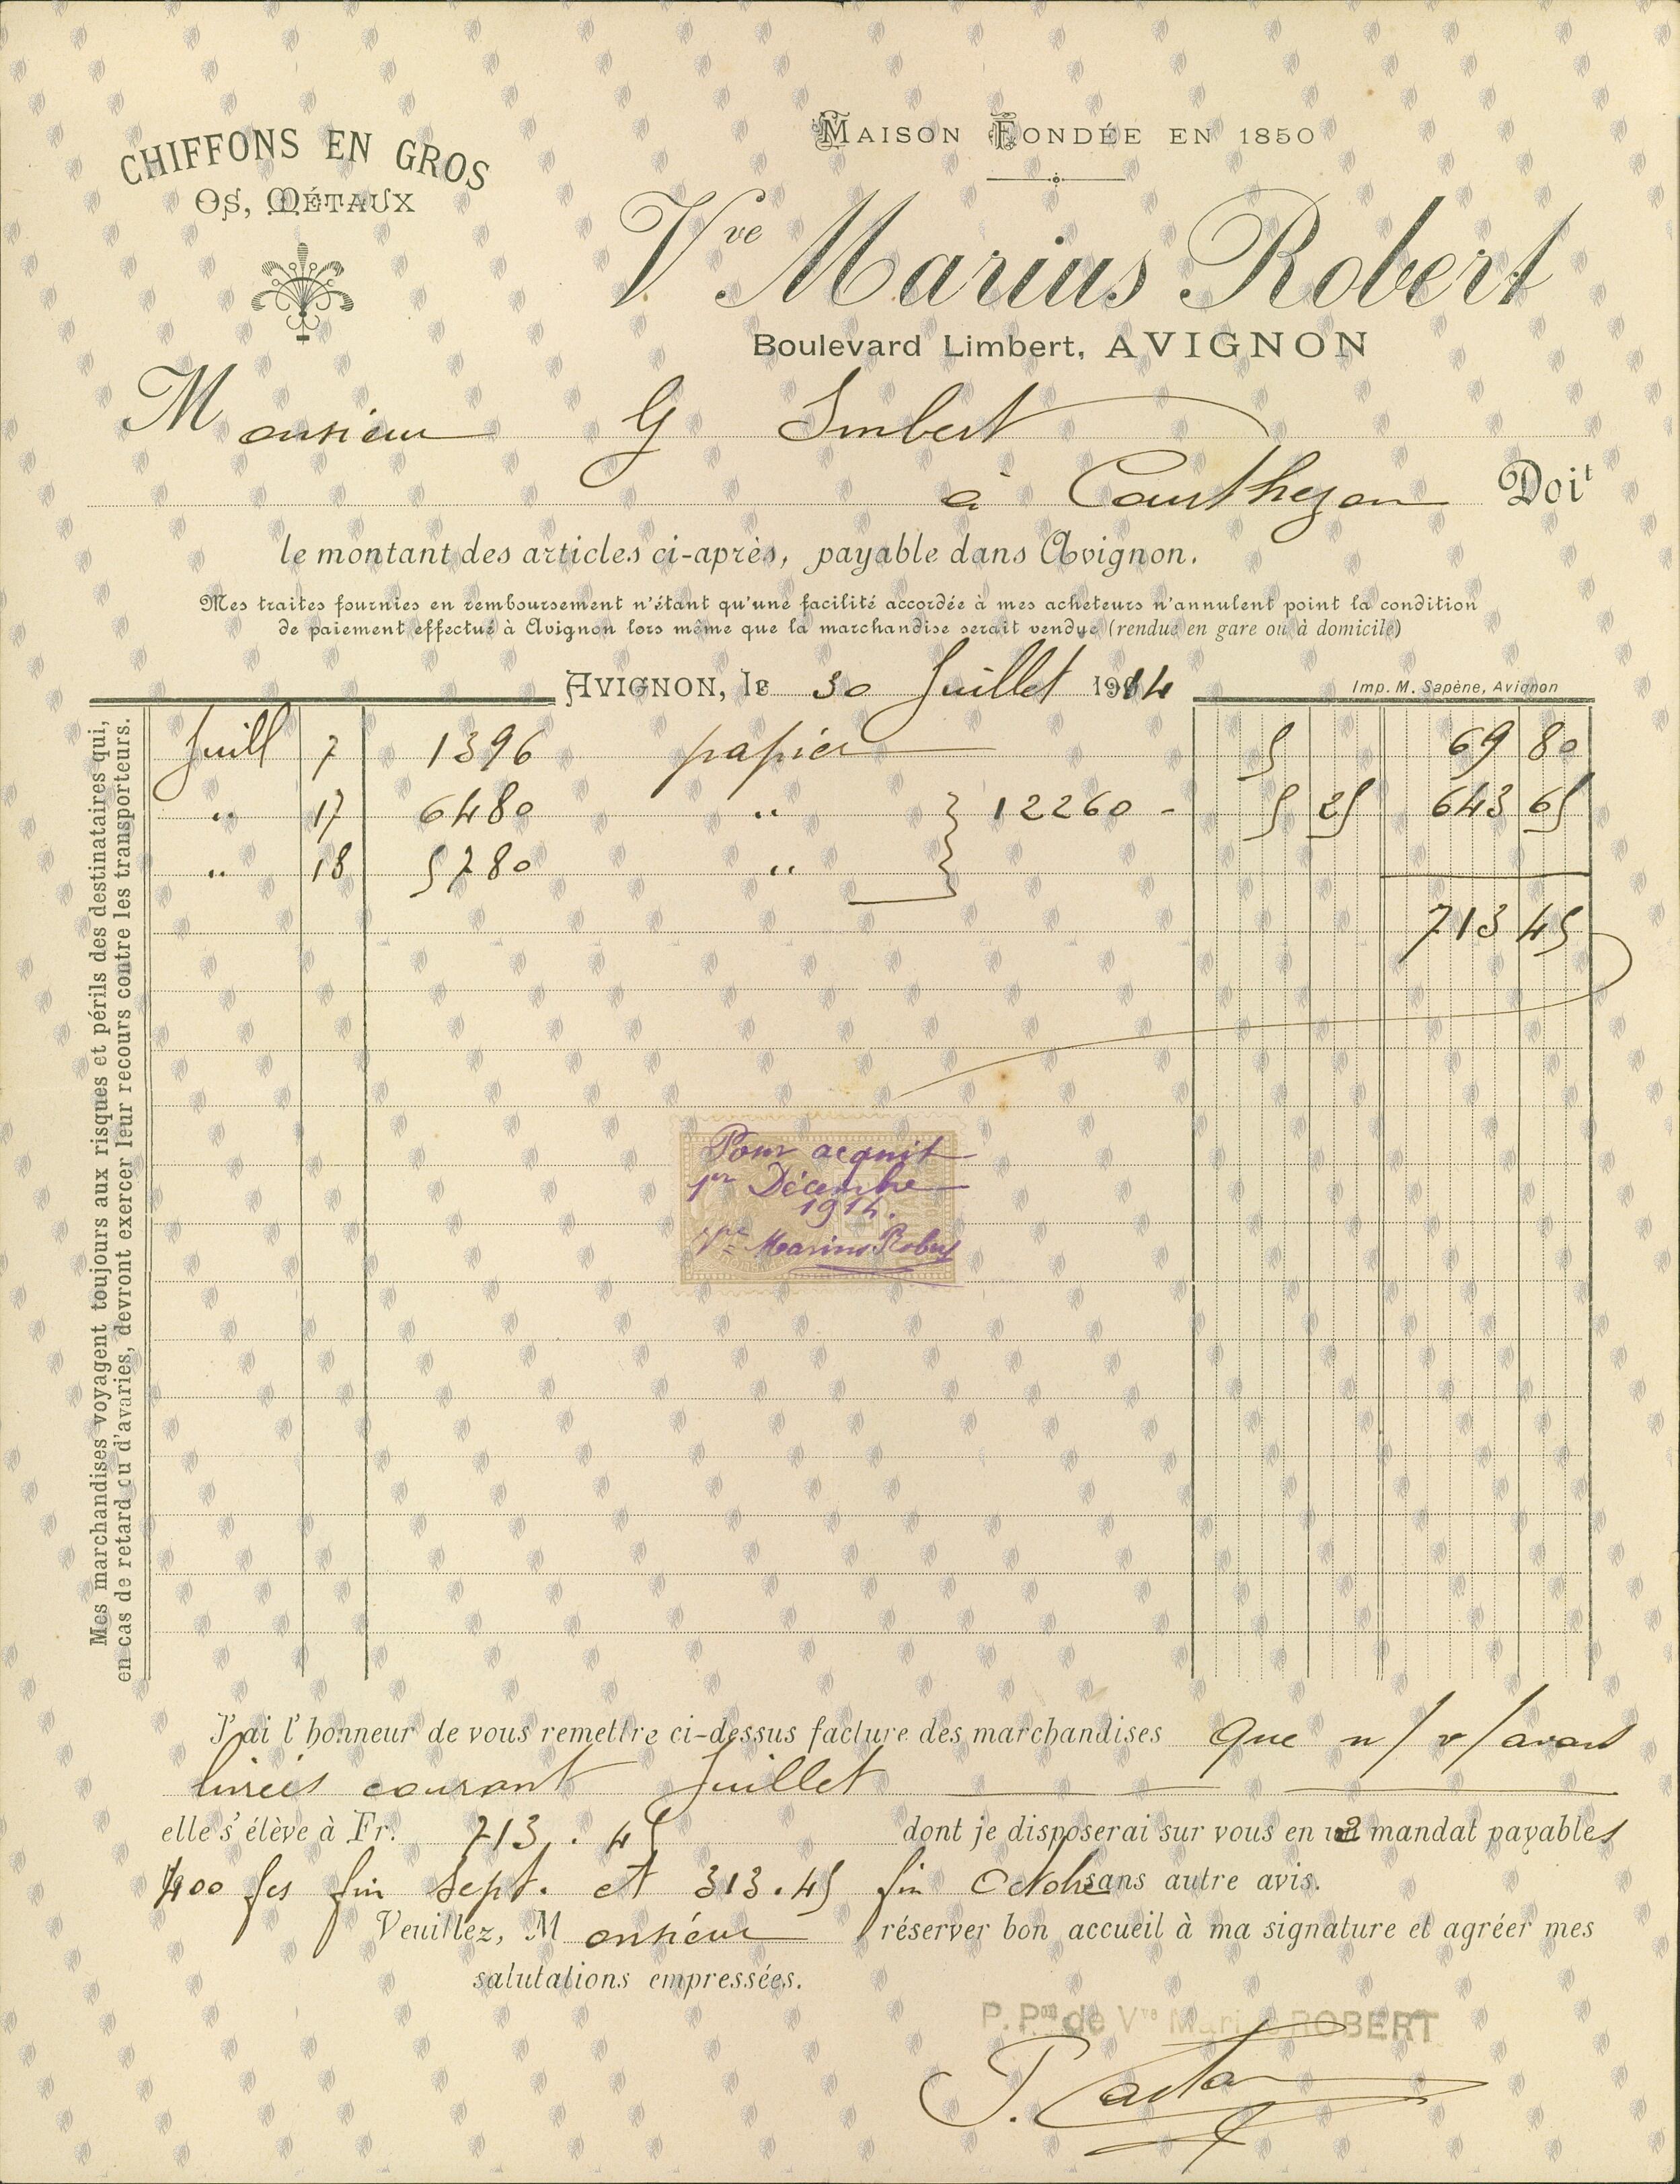 CHIFFONS EN GROS
OS, MÉTAUX
MAISON FONDÉE EN 1850
Vve Marius Robert
Boulevard Limbert, AVIGNON
Monsieur G Imbert
à Courthezon Doit
le montant des articles ci-après, payable dans Avignon.
Mes traites fournies en remboursement n'étant qu'une facilité accordée à mes acheteurs n'annulent point la condition
de paiement effectué à Avignon lors même que la marchandise serait vendue (rendue en gare ou à domicile)
AVIGNON, le 30 Juillet 1914
Imp. M. Sapène, Avignon
Mes marchandises voyagent toujours aux risques et périls des destinataires qui,
en cas de retard ou d'avaries, devront exercer leur recours contre les transporteurs.
Juill 7 1396 papier 5 69 80
" 17 6480 " } 12260 - 5 25 643 65
" 18 5780 "
713 45
Pour acquit
1er Décembre
1914.
Vve Marius Robert
J'ai l'honneur de vous remettre ci-dessus facture des marchandises que n/ v/ avons
livrées courant Juillet
elle s'élève à Fr. 713.45 dont je disposerai sur vous en 2 mandat payables
400 fcs fin Sept. et 313.45 fin Octobre sans autre avis.
Veuillez, Monsieur réserver bon accueil à ma signature et agréer mes
salutations empressées.
P. Pon de Vve Marius ROBERT